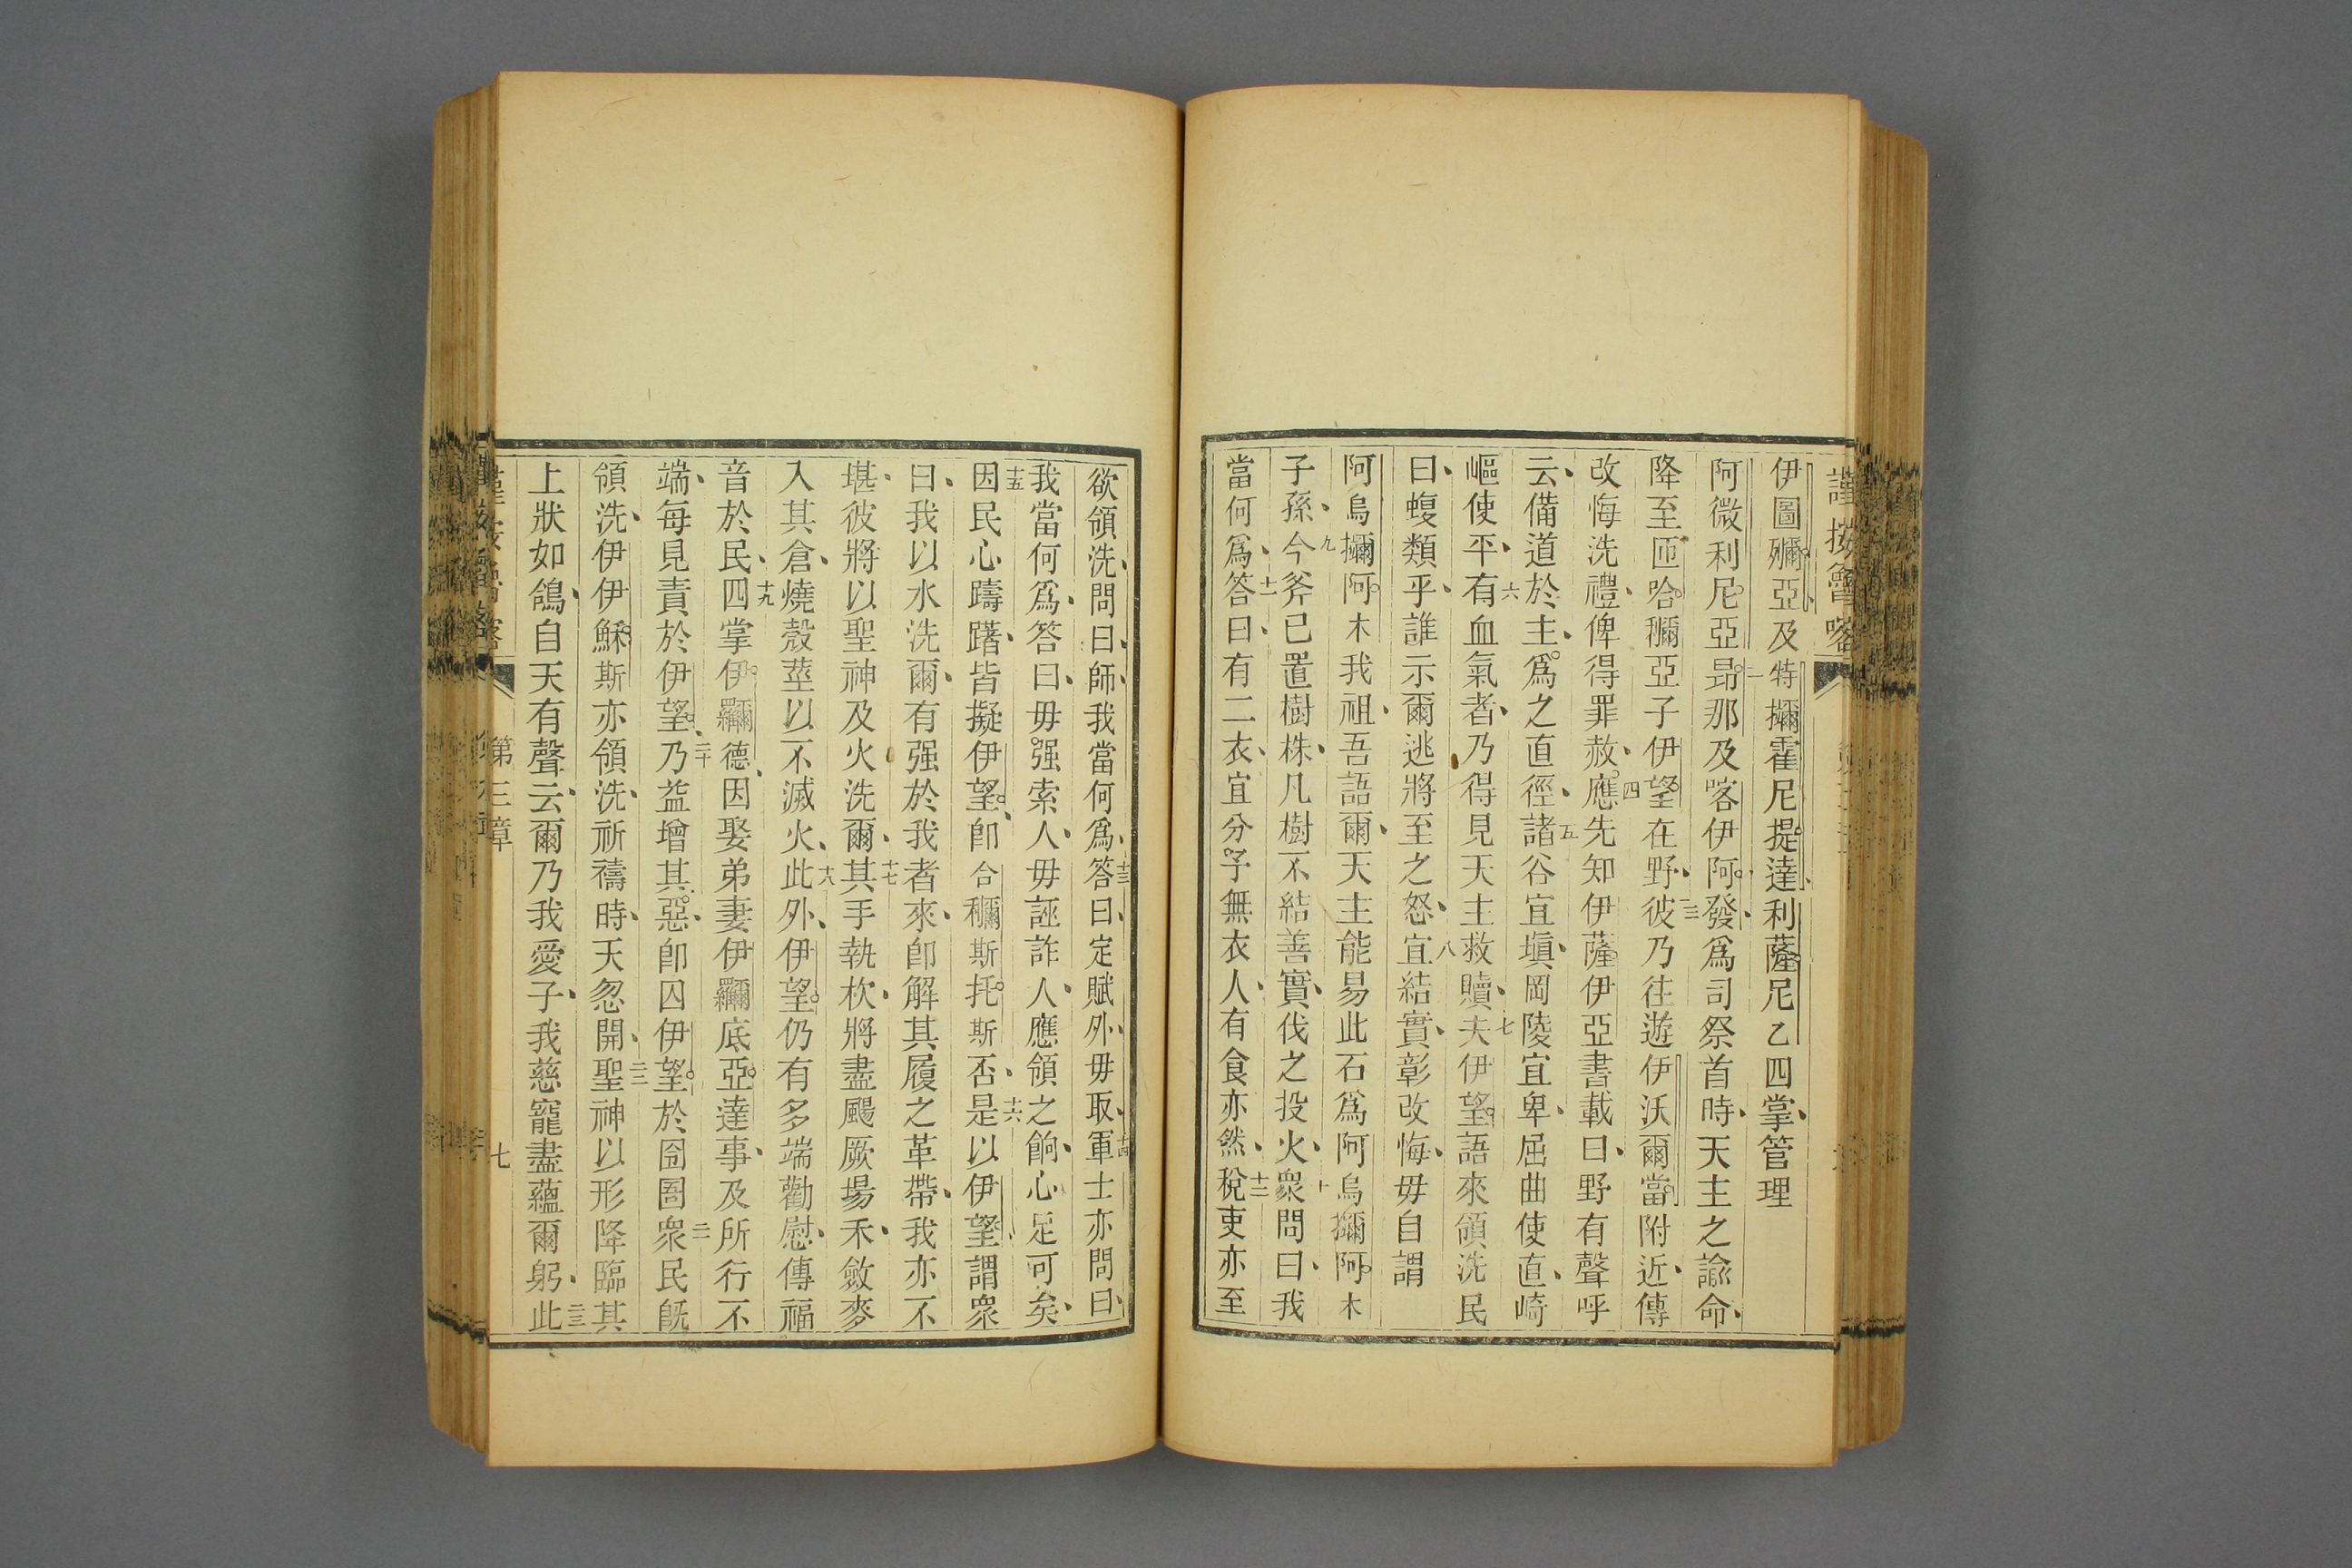 謹按魯喀
伊圖彌亞及特攡霍尼提達利薩尼乙四掌管理
阿微利尼亞二昻那及喀伊阿發爲司祭首時天主之諭命
降至匝哈穪亞子伊望在野三彼乃往遊伊沃爾當附近傳
改悔洗禮俾得罪赦四應先知伊薩伊亞書載曰野有聲呼
云備道於主爲之直徑五諸谷宜塡岡陵宜卑屈曲使直崎
嶇使平六有血氣者乃得見天主救贖七夫伊望語來領洗民
曰蝮類乎誰示爾逃將至之怒八宜結實彰改悔毋自謂
阿烏攡阿木我祖吾語爾天主能易此石爲阿烏攡阿木
子孫九今斧已置樹株凡樹不結善實伐之投火十衆問曰我
當何爲十一答曰有二衣宜分予無衣人有食亦然十二稅吏亦至
欲領洗問曰師我當何爲十三答曰定賦外毋取十四軍士亦問曰
我當何爲答曰毋强索人毋誣詐人應領之餉心足可矣
十五因民心躊躇皆擬伊望卽合穪斯托斯否十六是以伊望謂衆
曰我以水洗爾有强於我者來卽解其履之革帶我亦不
堪彼將以聖神及火洗爾十七其手執杴將盡颺厥場禾斂麥
入其倉燒殼莖以不滅火十八此外伊望仍有多端勸慰傳福
音於民十九四掌伊囉德因娶弟妻伊囉底亞達事及所行不
端每見責於伊望二十乃益增其惡卽囚伊望於囹圄二一衆民旣
領洗伊伊穌斯亦領洗祈禱時天忽開二二聖神以形降臨其
上狀如鴿自天有聲云爾乃我愛子我慈寵盡蘊爾躬二三此
第三章
七